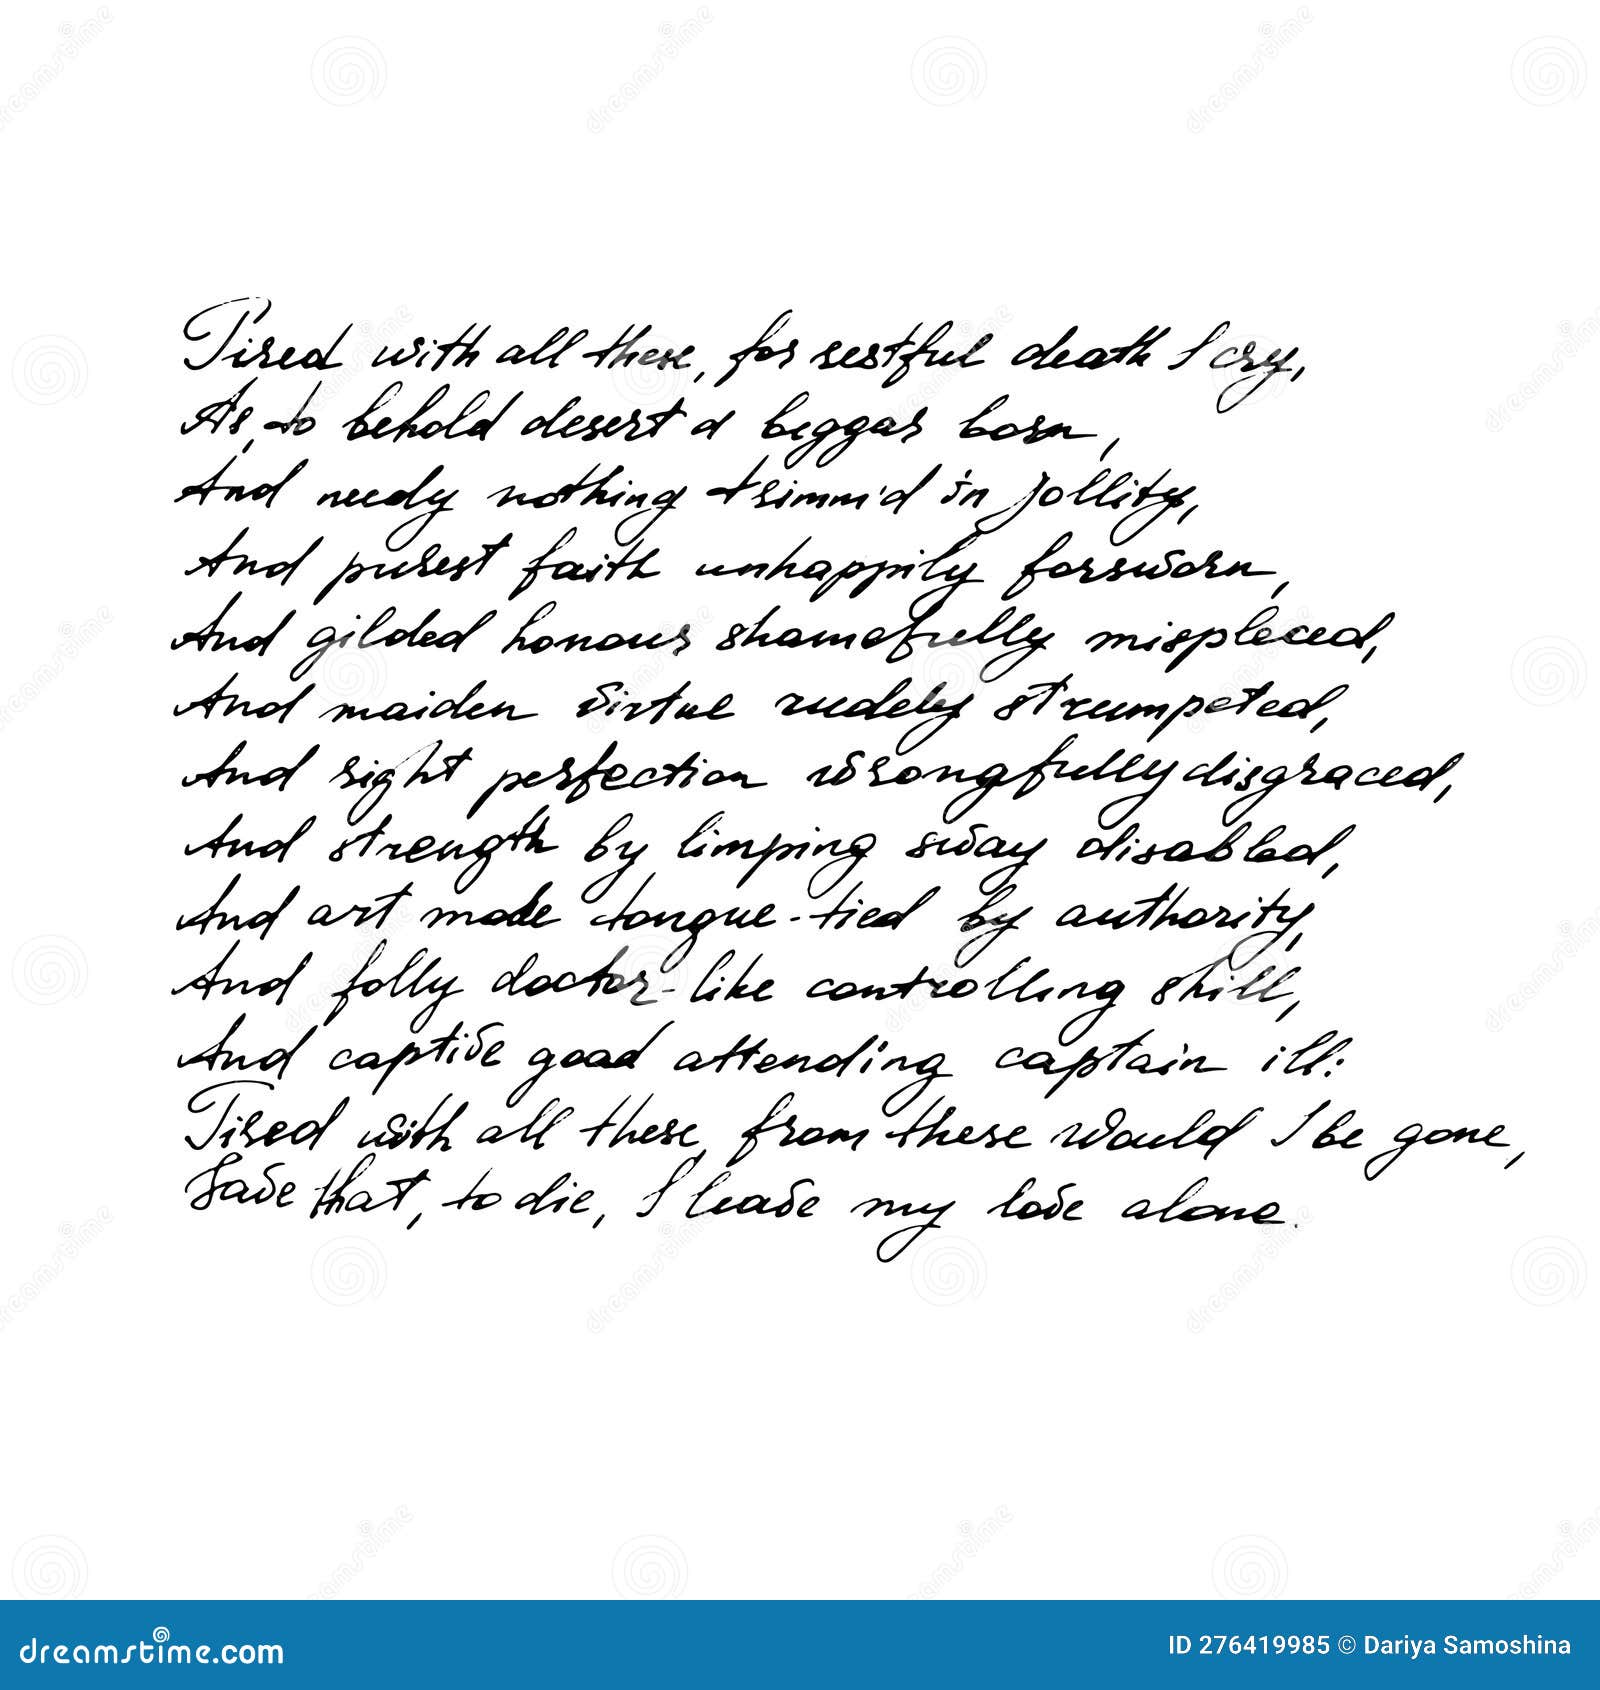 Tired with all these, for restful death I cry,
As, to behold desert a beggar born,
And needy nothing trimm'd in jollity,
And purest faith unhappily forsworn,
And gilded honour shamefully misplaced,
And maiden virtue rudely strumpeted,
And right perfection wrongfully disgraced,
And strength by limping sway disabled,
And art made tongue-tied by authority,
And folly doctor-like controlling skill,
And captive good attending captain ill:
Tired with all these, from these would I be gone,
Save that, to die, I leave my love alone.
dreamstime.com
ID 276419985 © Dariya Samoshina